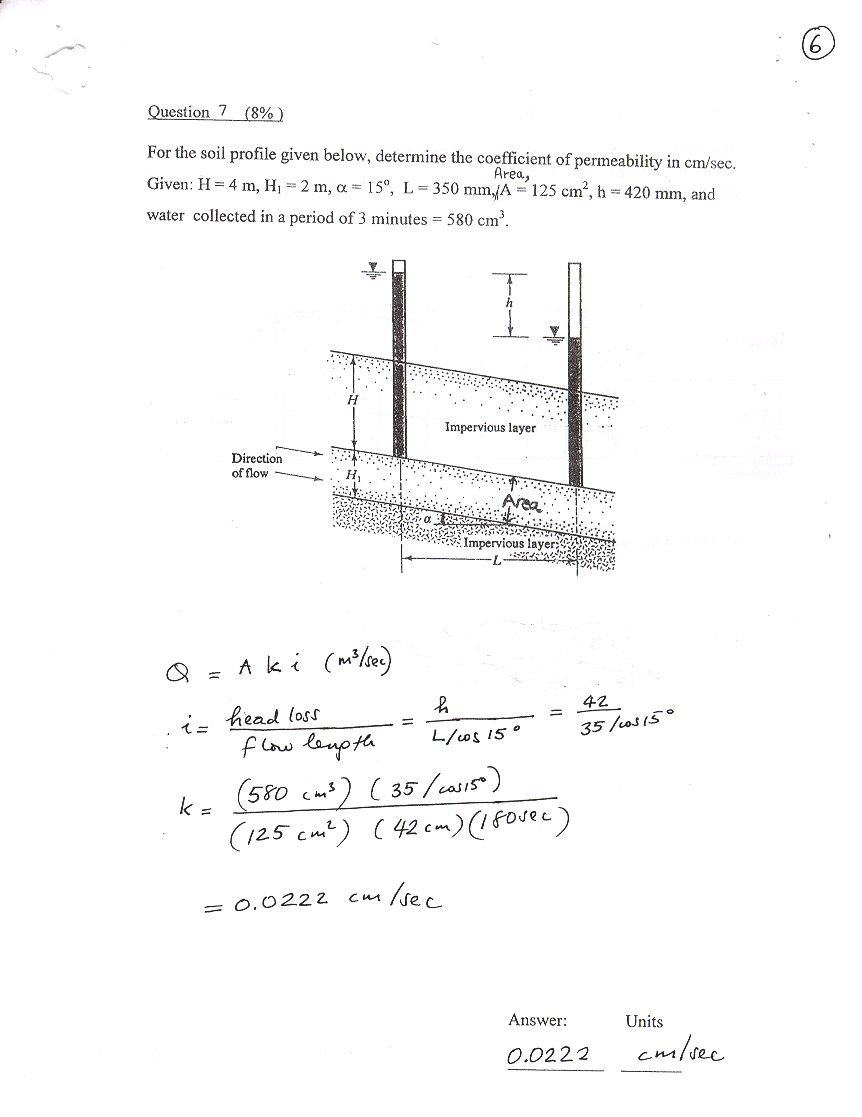 6
Question 7 (8%)
For the soil profile given below, determine the coefficient of permeability in cm/sec.
Area,
Given: H = 4 m, H₁ = 2 m, α = 15°, L = 350 mm, A = 125 cm², h = 420 mm, and
water collected in a period of 3 minutes = 580 cm³.
h
H
Impervious layer
Direction
of flow
H₁
Area
α
Impervious layer
L
Q = A k i (m³/sec)
i = head loss / flow length = h / L/cos 15° = 42 / 35/cos15°
k = (580 cm³) (35/cos15°) / (125 cm²) (42 cm) (180sec)
= 0.0222 cm/sec
Answer: Units
0.0222 cm/sec